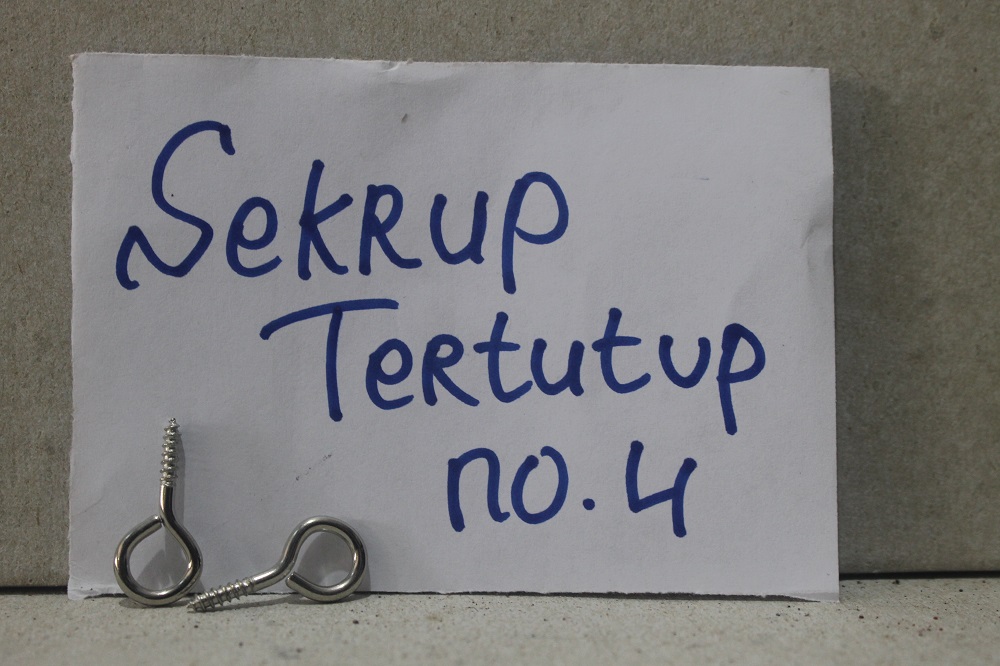 Sekrup
Tertutup
no. 4